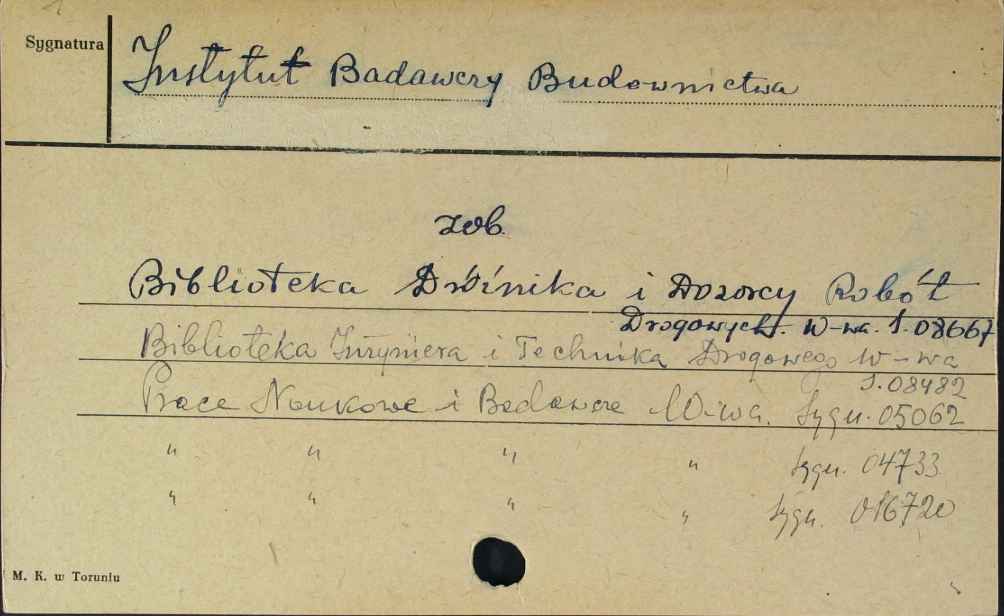 Sygnatura
Instytut Badawczy Budownictwa
zob.
Biblioteka Dróżnika i Dozorcy Robót
Drogowych. W-wa. S. 08667
Biblioteka Inżyniera i Technika Drogowego W-wa
S. 08482
Prace Naukowe i Badawcze W-wa. Sygn. 05062
" " " " Sygn. 04733
" " " " Sygn. 016720
M. K. w Toruniu